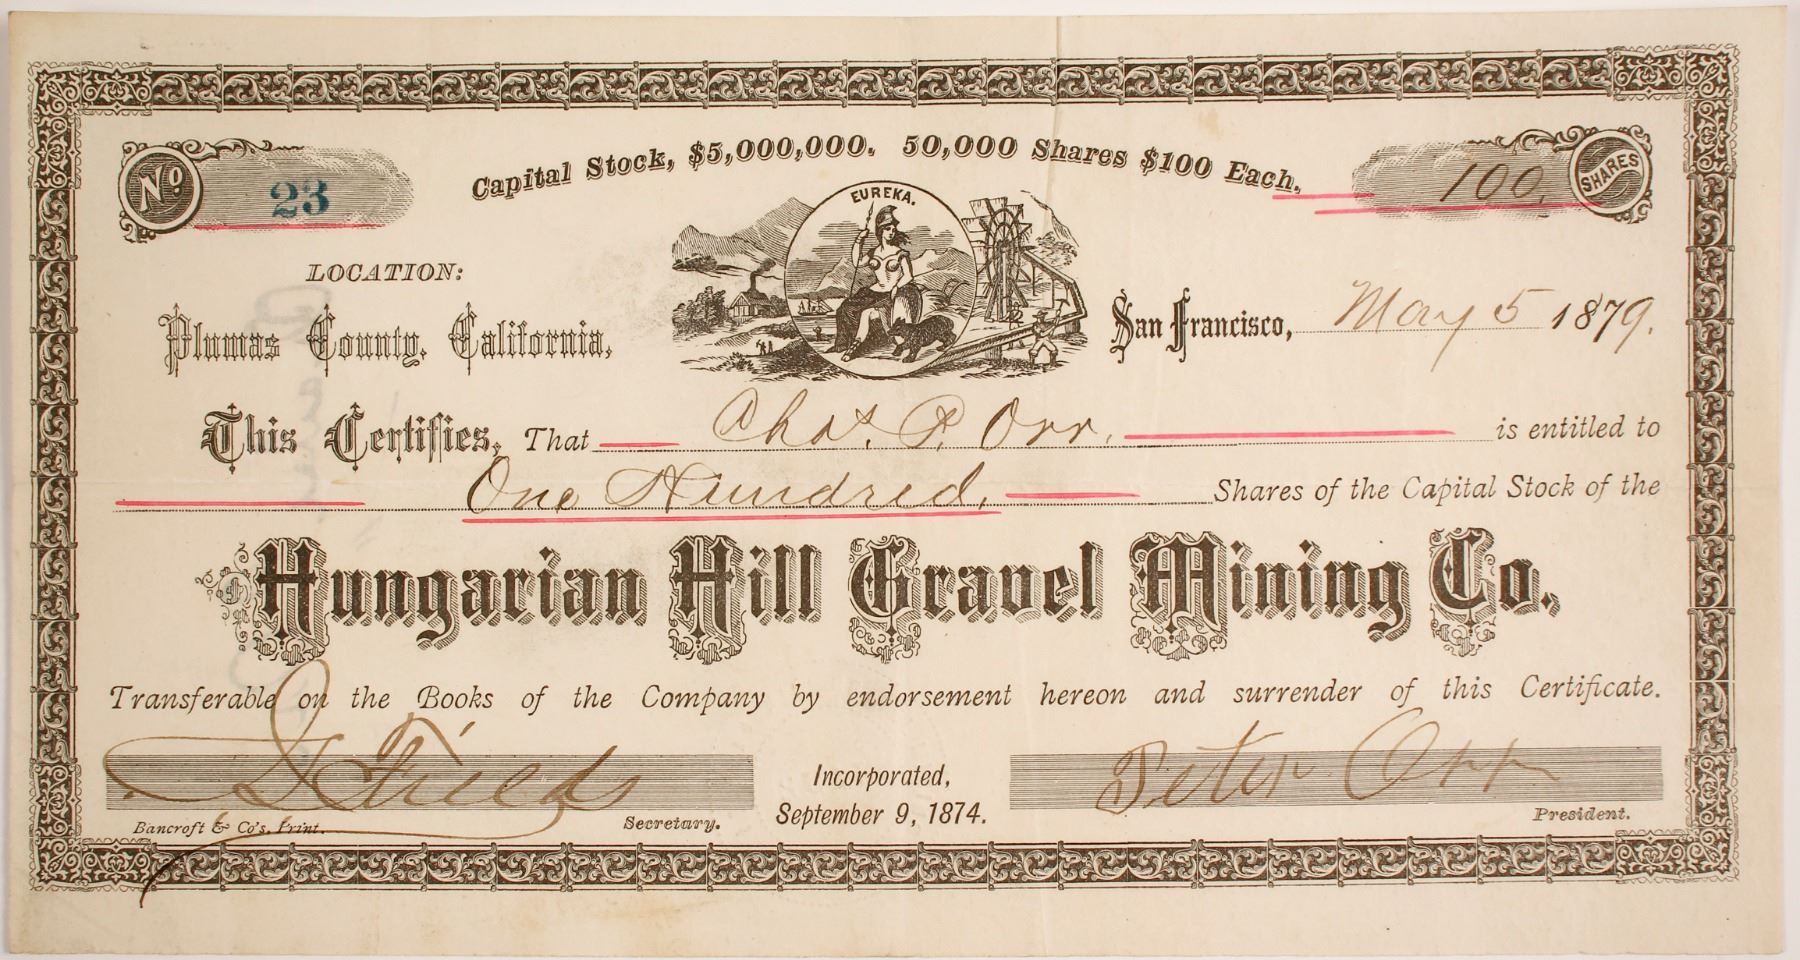 Capital Stock, $5,000,000. 50,000 Shares $100 Each.
No. 23
100. SHARES
EUREKA.
LOCATION:
Plumas County, California,
San Francisco, May 5 1879.
This Certifies, That Chas. P. Orr, is entitled to
One Hundred, Shares of the Capital Stock of the
Hungarian Hill Gravel Mining Co.
Transferable on the Books of the Company by endorsement hereon and surrender of this Certificate.
Incorporated,
September 9, 1874.
Peter Orr
Bancroft & Co's. Print.
Secretary.
President.